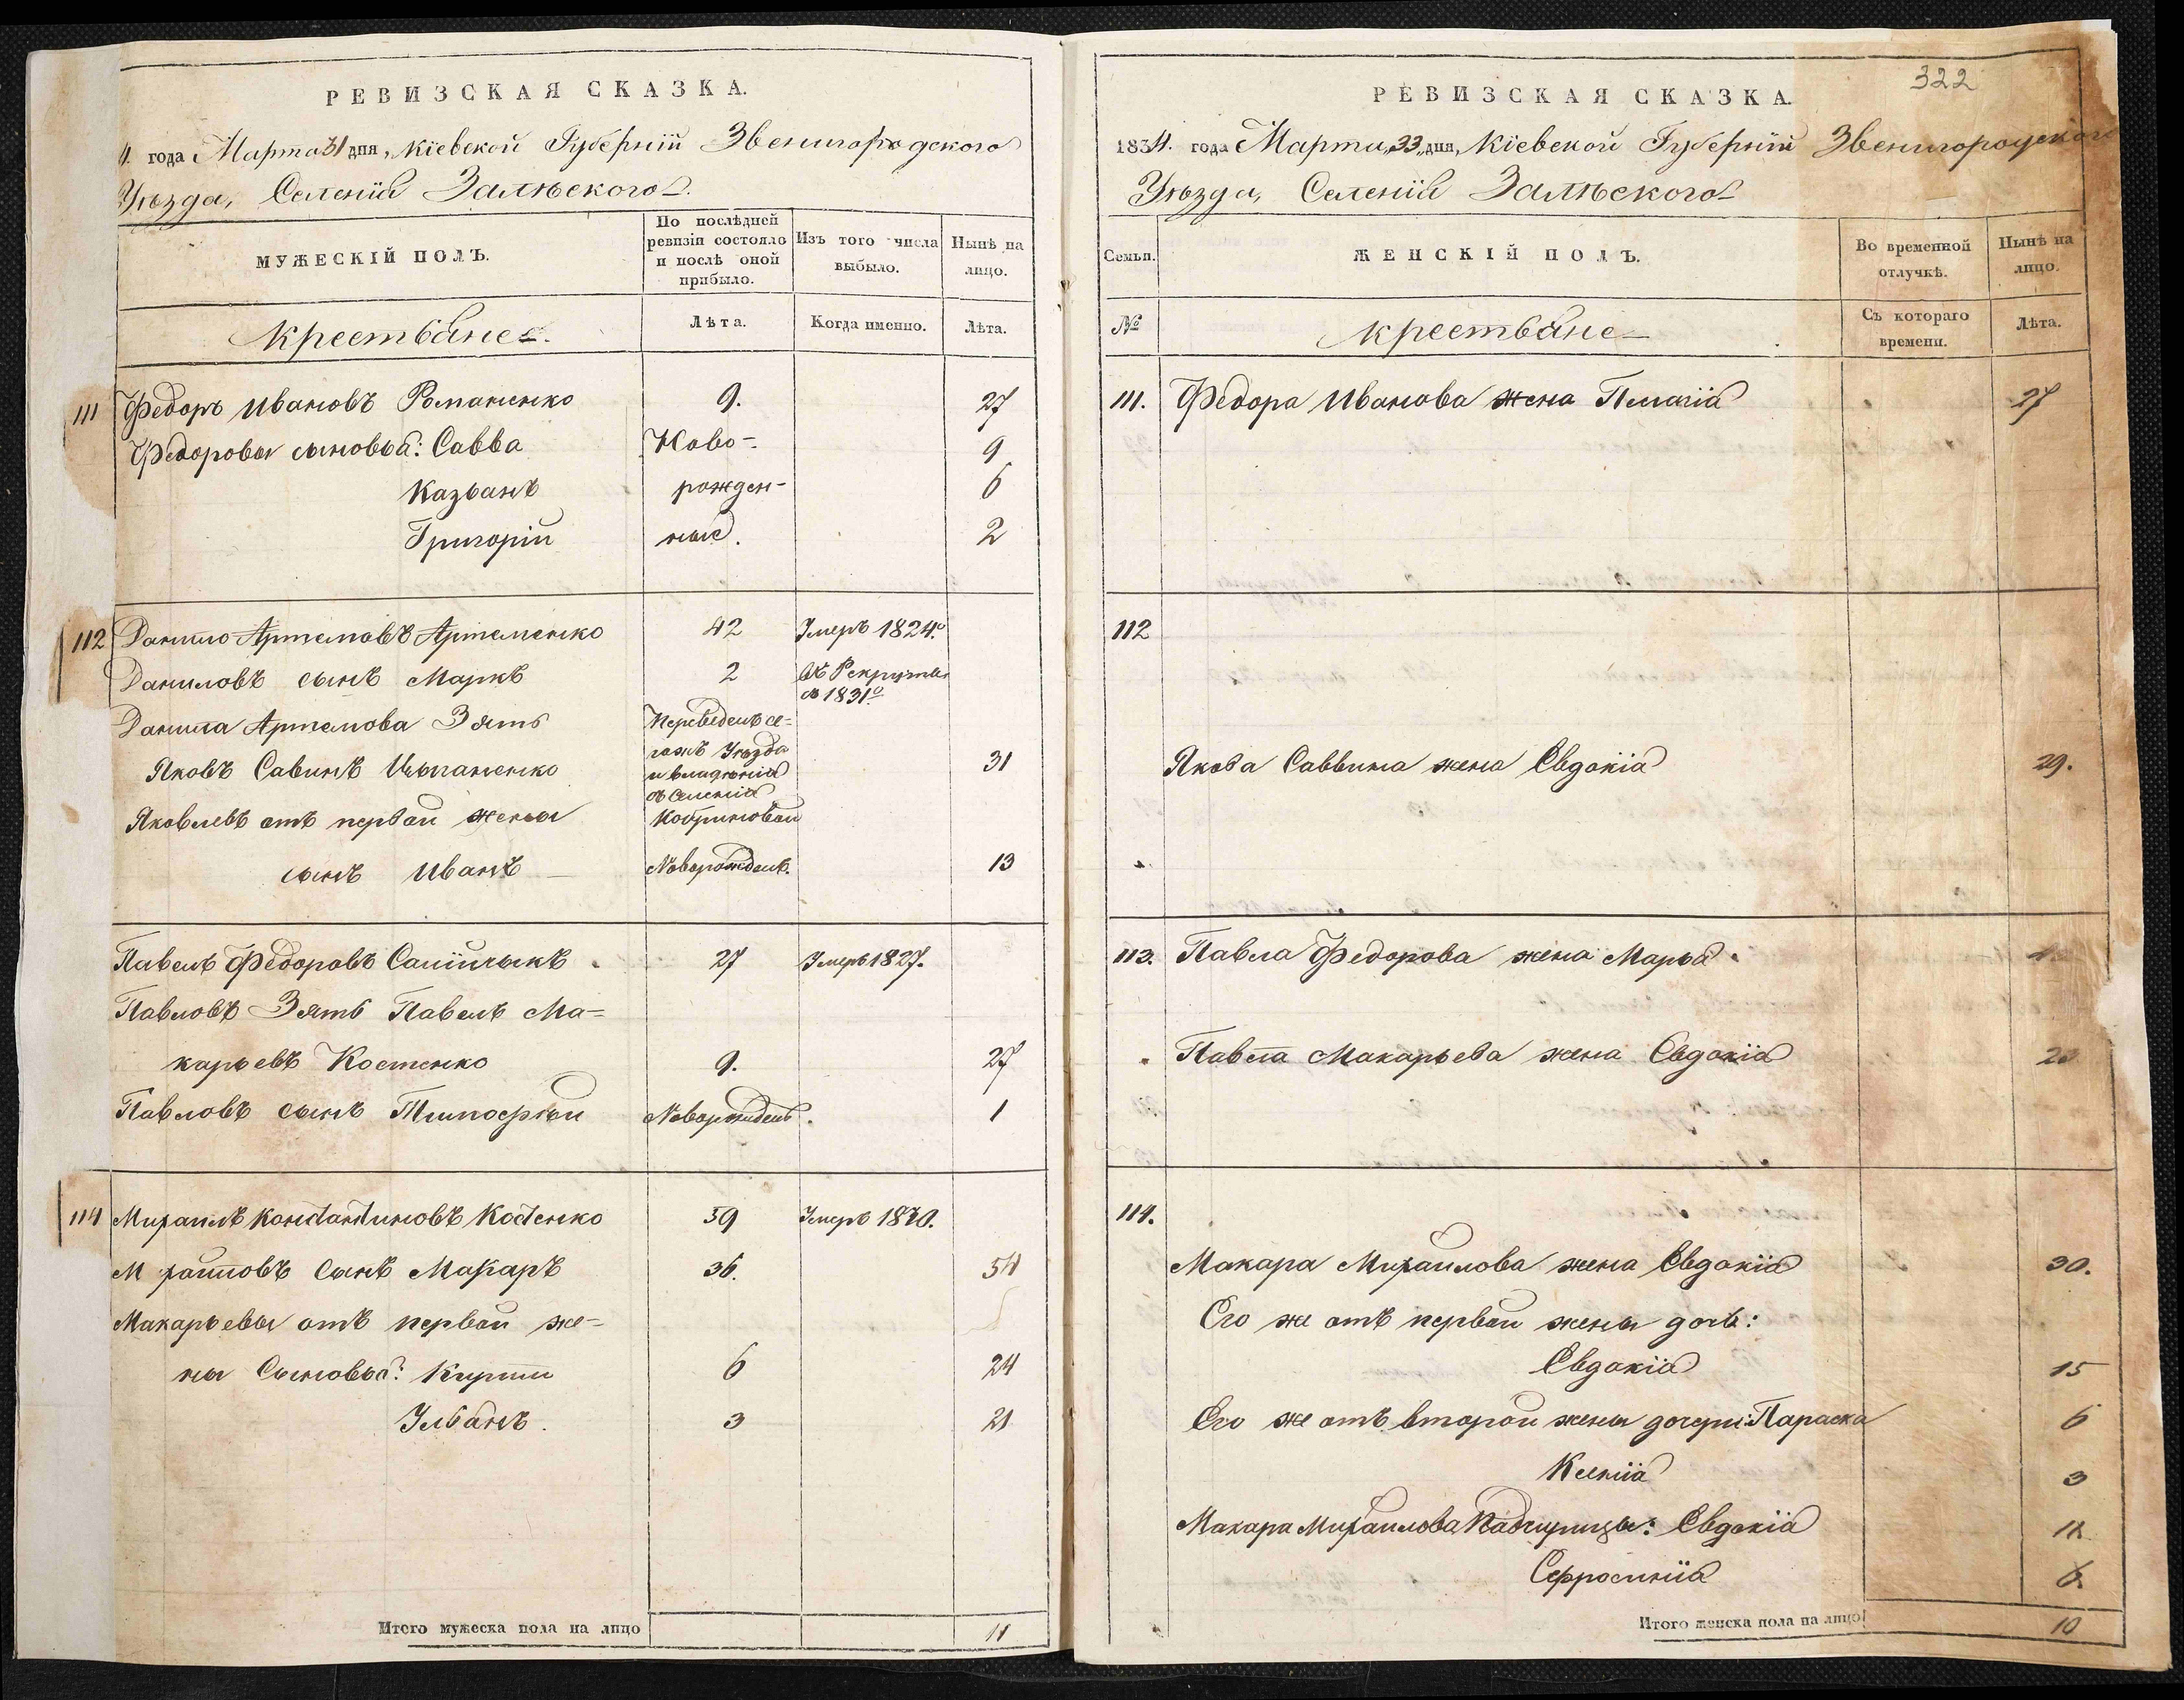 РЕВИЗСКАЯ СКАЗКА.
4. года Марта 31 дня, Кіевской Губерніи Звенигородского
Уѣзда, Селенія Залѣского.
МУЖЕСКІЙ ПОЛЪ.
По послѣдней ревизіи состояло и послѣ оной прибыло.
Изъ того числа выбыло.
Нынѣ на лицо.
Крестьяне.
Лѣта.
Когда именно.
Лѣта.
111 Федоръ Ивановъ Романенко 9. 27
Федоровы сыновья: Савва Ново- 9
Казьанъ рожден- 6
Григорій ные. 2
112 Данило Артемовъ Артеменко 42 Умеръ 1824.о
Даниловъ сынъ Маркъ 2 въ Рекруты
в 1831о
Данила Артемова Зять Переведенъ се-
гожъ Уѣзда
Яковъ Савинъ Цыганенко и владѣнія 31
съ Селенія
Яковлевъ отъ первой жены Кобриновой
сынъ Иванъ Новорожденъ. 13
Павелъ Федоровъ 27 Умеръ 1827.
Павловъ Зять Павелъ Ма-
карьевъ Костенко 9. 27
Павловъ сынъ Тимоѳей Новорожденъ. 1
114 Михаилъ Константиновъ Костенко 59 Умеръ 1830.
М хайловъ Сынъ Макаръ 36. 54
Макарьевы отъ первой же-
ны Сыновья: Кирили 6 24
Ульанъ. 3 21
Итого мужеска пола на лицо 11
322
РЕВИЗСКАЯ СКАЗКА.
1834. года Марта, 33, дня, Кіевской Губерніи Звенигородского
Уѣзда, Селенія Залѣского
Семьи.
ЖЕНСКІЙ ПОЛЪ.
Во временной отлучкѣ.
Нынѣ на лицо.
№
Крестьяне
Съ котораго времени.
Лѣта.
111. Федора Иванова жена Пелагія 27
112
Якова Саввина жена Евдокія 29.
113. Павла Федорова жена Марья.
Павла Макарьева жена Евдокія
114.
Макара Михайлова жена Евдокія 30.
Его же отъ первой жены дочь:
Евдокія 15
Его же отъ второй жены дочери: Параска 6
Ксенія 3
Макара Михайлова Падчирицы: Евдокія 11.
Ефросинія 6.
Итого женска пола на лицо 10